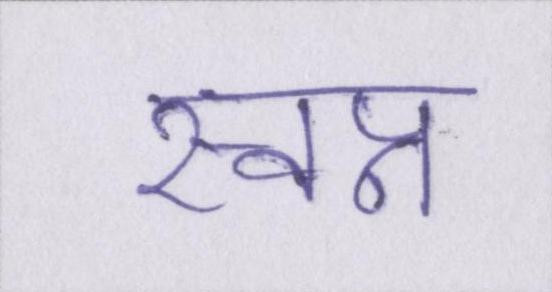 स्वप्न